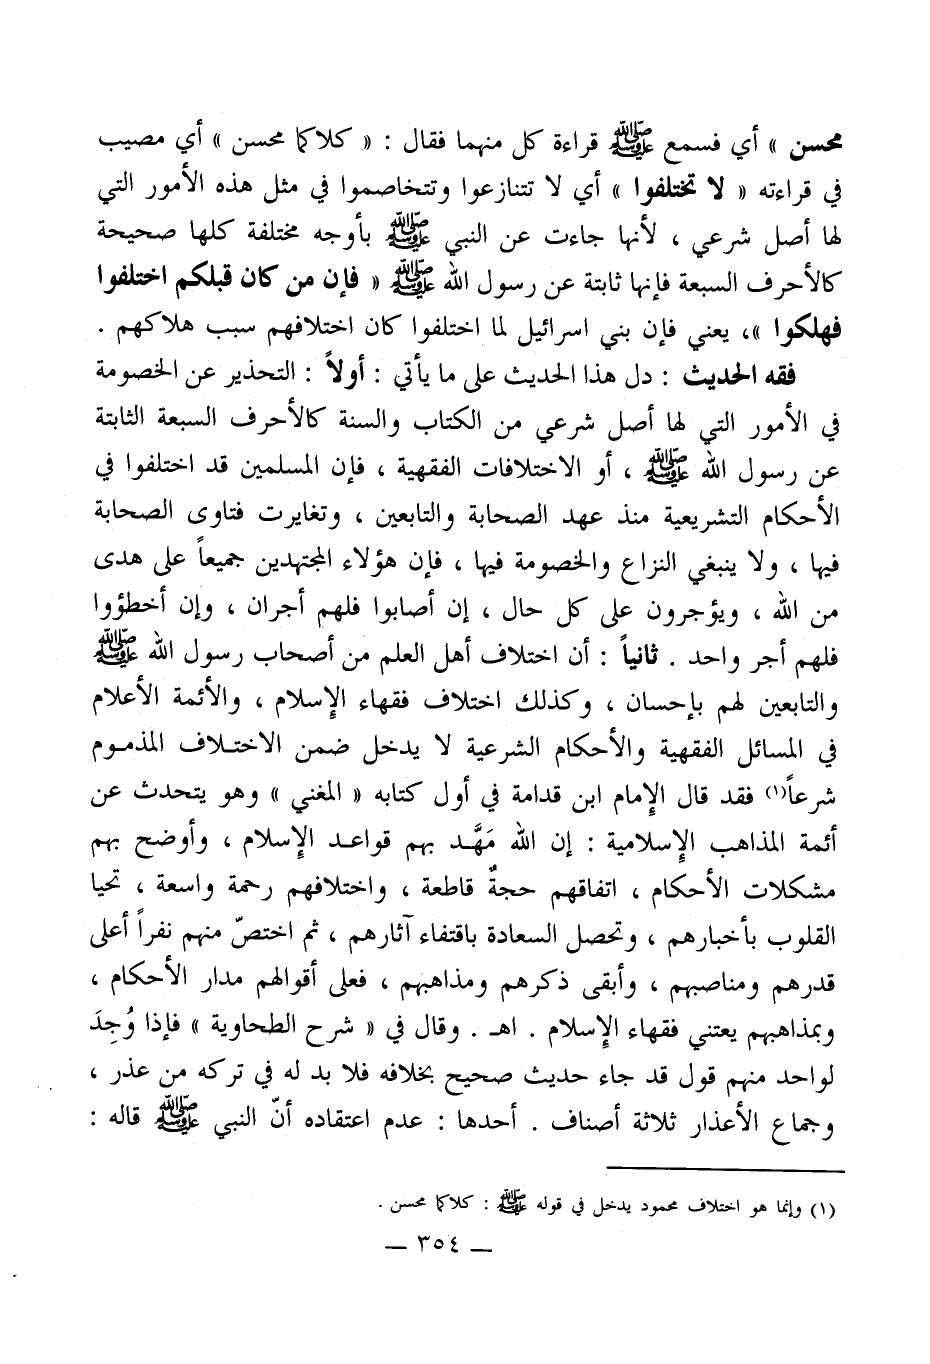 محسن » أي فسمع ﷺ قراءة كل منهما فقال : « كلاكما محسن » أي مصيب
في قراءته « لا تختلفوا » أي لا تتنازعوا وتتخاصموا في مثل هذه الأمور التي
لها أصل شرعي ، لأنها جاءت عن النبي ﷺ بأوجه مختلفة كلها صحيحة
كالأحرف السبعة فإنها ثابتة عن رسول الله ﷺ « فإن من كان قبلكم اختلفوا
فهلكوا »، يعني فإن بني اسرائيل لما اختلفوا كان اختلافهم سبب هلاكهم .
فقه الحديث : دل هذا الحديث على ما يأتي : أولاً : التحذير عن الخصومة
في الأمور التي لها أصل شرعي من الكتاب والسنة كالأحرف السبعة الثابتة
عن رسول الله ﷺ ، أو الاختلافات الفقهية ، فإن المسلمين قد اختلفوا في
الأحكام التشريعية منذ عهد الصحابة والتابعين ، وتغايرت فتاوى الصحابة
فيها ، ولا ينبغي النزاع والخصومة فيها ، فإن هؤلاء المجتهدين جميعاً على هدى
من الله ، ويؤجرون على كل حال ، إن أصابوا فلهم أجران ، وإن أخطؤوا
فلهم أجر واحد . ثانياً : أن اختلاف أهل العلم من أصحاب رسول الله ﷺ
والتابعين لهم بإحسان ، وكذلك اختلاف فقهاء الإسلام ، والأئمة الأعلام
في المسائل الفقهية والأحكام الشرعية لا يدخل ضمن الاختلاف المذموم
شرعاً(١) فقد قال الإمام ابن قدامة في أول كتابه « المغني » وهو يتحدث عن
أئمة المذاهب الإسلامية : إن الله مَهَّد بهم قواعد الإسلام ، وأوضح بهم
مشكلات الأحكام ، اتفاقهم حجةٌ قاطعة ، واختلافهم رحمة واسعة ، تحيا
القلوب بأخبارهم ، وتحصل السعادة باقتفاء آثارهم ، ثم اختصّ منهم نفراً أعلى
قدرهم ومناصبهم ، وأبقى ذكرهم ومذاهبهم ، فعلى أقوالهم مدار الأحكام ،
وبمذاهبهم يعتني فقهاء الإسلام . اهـ . وقال في « شرح الطحاوية » فإذا وُجِدَ
لواحد منهم قول قد جاء حديث صحيح بخلافه فلا بد له في تركه من عذر ،
وجماع الأعذار ثلاثة أصناف . أحدها : عدم اعتقاده أنّ النبي ﷺ قاله :
(١) وإنما هو اختلاف محمود يدخل في قوله ﷺ : كلاكما محسن .
— ٣٥٤ —